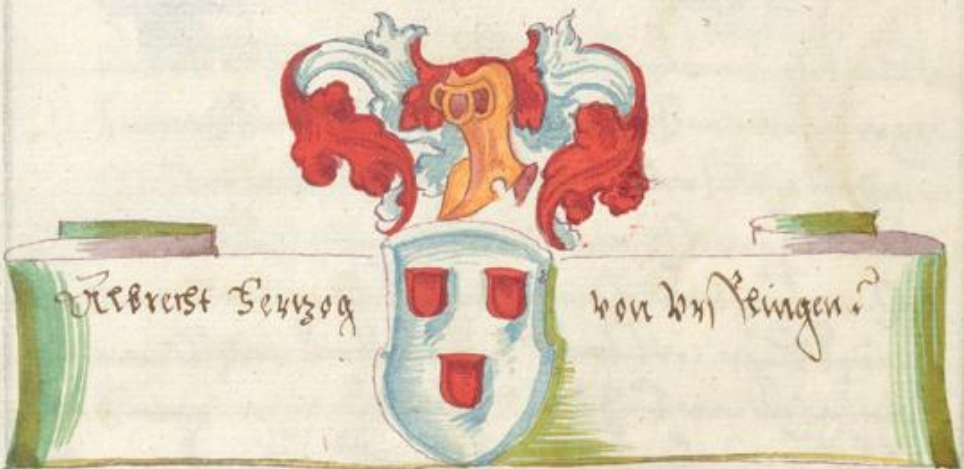 Albrecht Hertzog von Urslingen